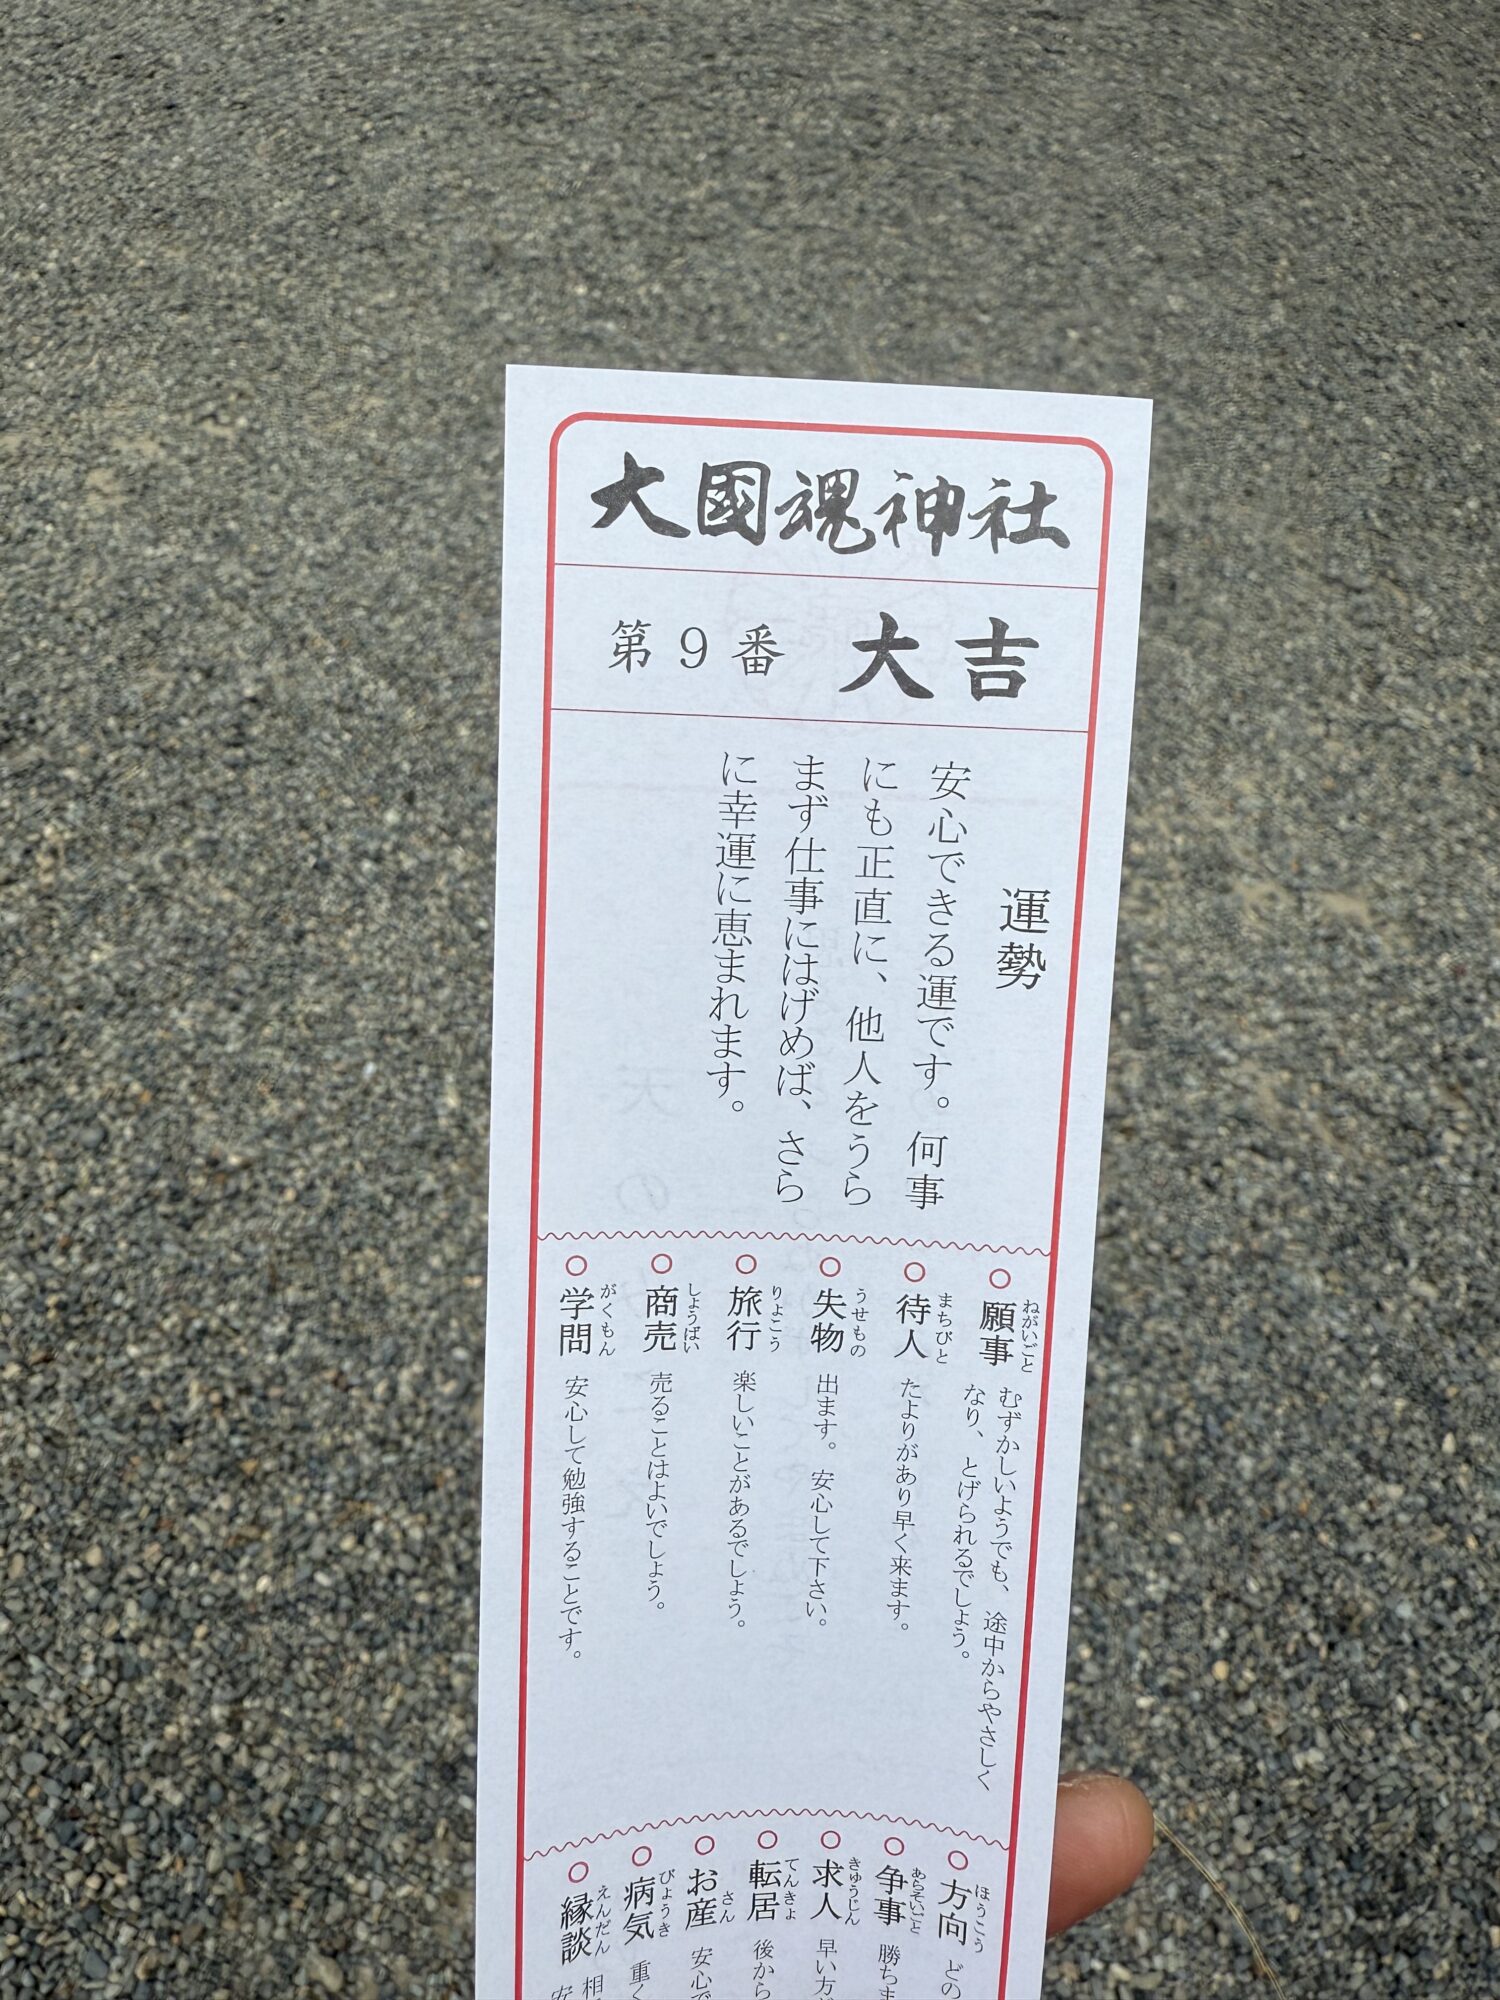 大國魂神社
第9番 大吉
運勢
安心できる運です。何事
にも正直に、他人をうら
まず仕事にはげめば、さら
に幸運に恵まれます。
○願事 ねがいごと むずかしいようでも、途中からやさしく
なり、とげられるでしょう。
○待人 まちびと たよりがあり早く来ます。
○失物 うせもの 出ます。安心して下さい。
○旅行 りょこう 楽しいことがあるでしょう。
○商売 しょうばい 売ることはよいでしょう。
○学問 がくもん 安心して勉強することです。
○方向 ほうこう どの
○争事 あらそいごと 勝ちま
○求人 きゅうじん 早い方
○転居 てんきょ 後から
○お産 さん 安心で
○病気 びょうき 重く
○縁談 えんだん 相
安